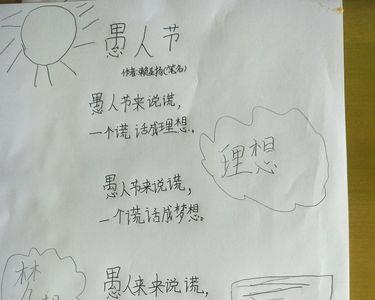 愚人节
愚人节来说谎，
一个谎话成理想。
理想
愚人节来说谎，
一个谎话成梦想。
林
愚人来来说谎，